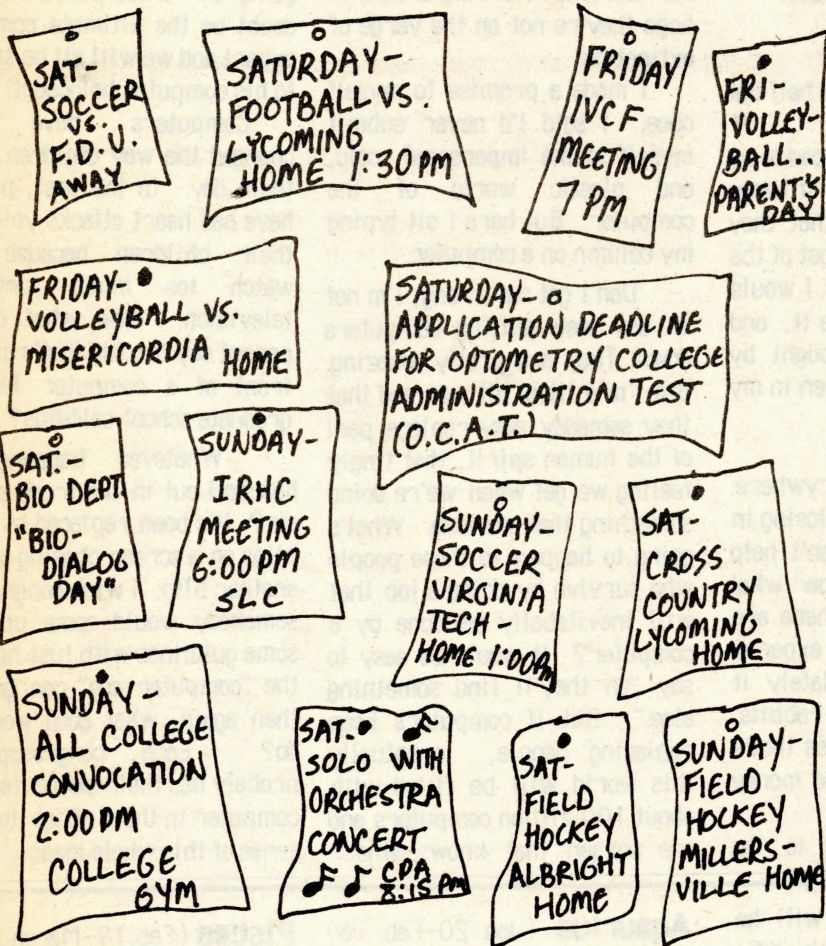 SAT-
SOCCER
VS.
F.D.U.
AWAY
SATURDAY-
FOOTBALL VS.
LYCOMING
HOME 1:30 PM
FRIDAY
IVCF
MEETING
7 PM
FRI-
VOLLEY-
BALL
PARENT'S
DAY
FRIDAY-
VOLLEYBALL VS.
MISERICORDIA HOME
SATURDAY-
APPLICATION DEADLINE
FOR OPTOMETRY COLLEGE
ADMINISTRATION TEST
(O.C.A.T.)
SAT-
BIO DEPT
"BIO-
DIALOG
DAY"
SUNDAY-
IRHC
MEETING
6:00 PM
SLC
SUNDAY-
SOCCER
VIRGINIA
TECH
HOME 1:00
SAT-
CROSS
COUNTRY
LYCOMING
HOME
SUNDAY-
ALL COLLEGE
CONVOCATION
2:00 PM
COLLEGE
GYM
SAT-
SOLO WITH
ORCHESTRA
CONCERT
CPA
8:15 PM
SAT-
FIELD
HOCKEY
ALBRIGHT
HOME
SUNDAY-
FIELD
HOCKEY
MILLERS-
VILLE HOME